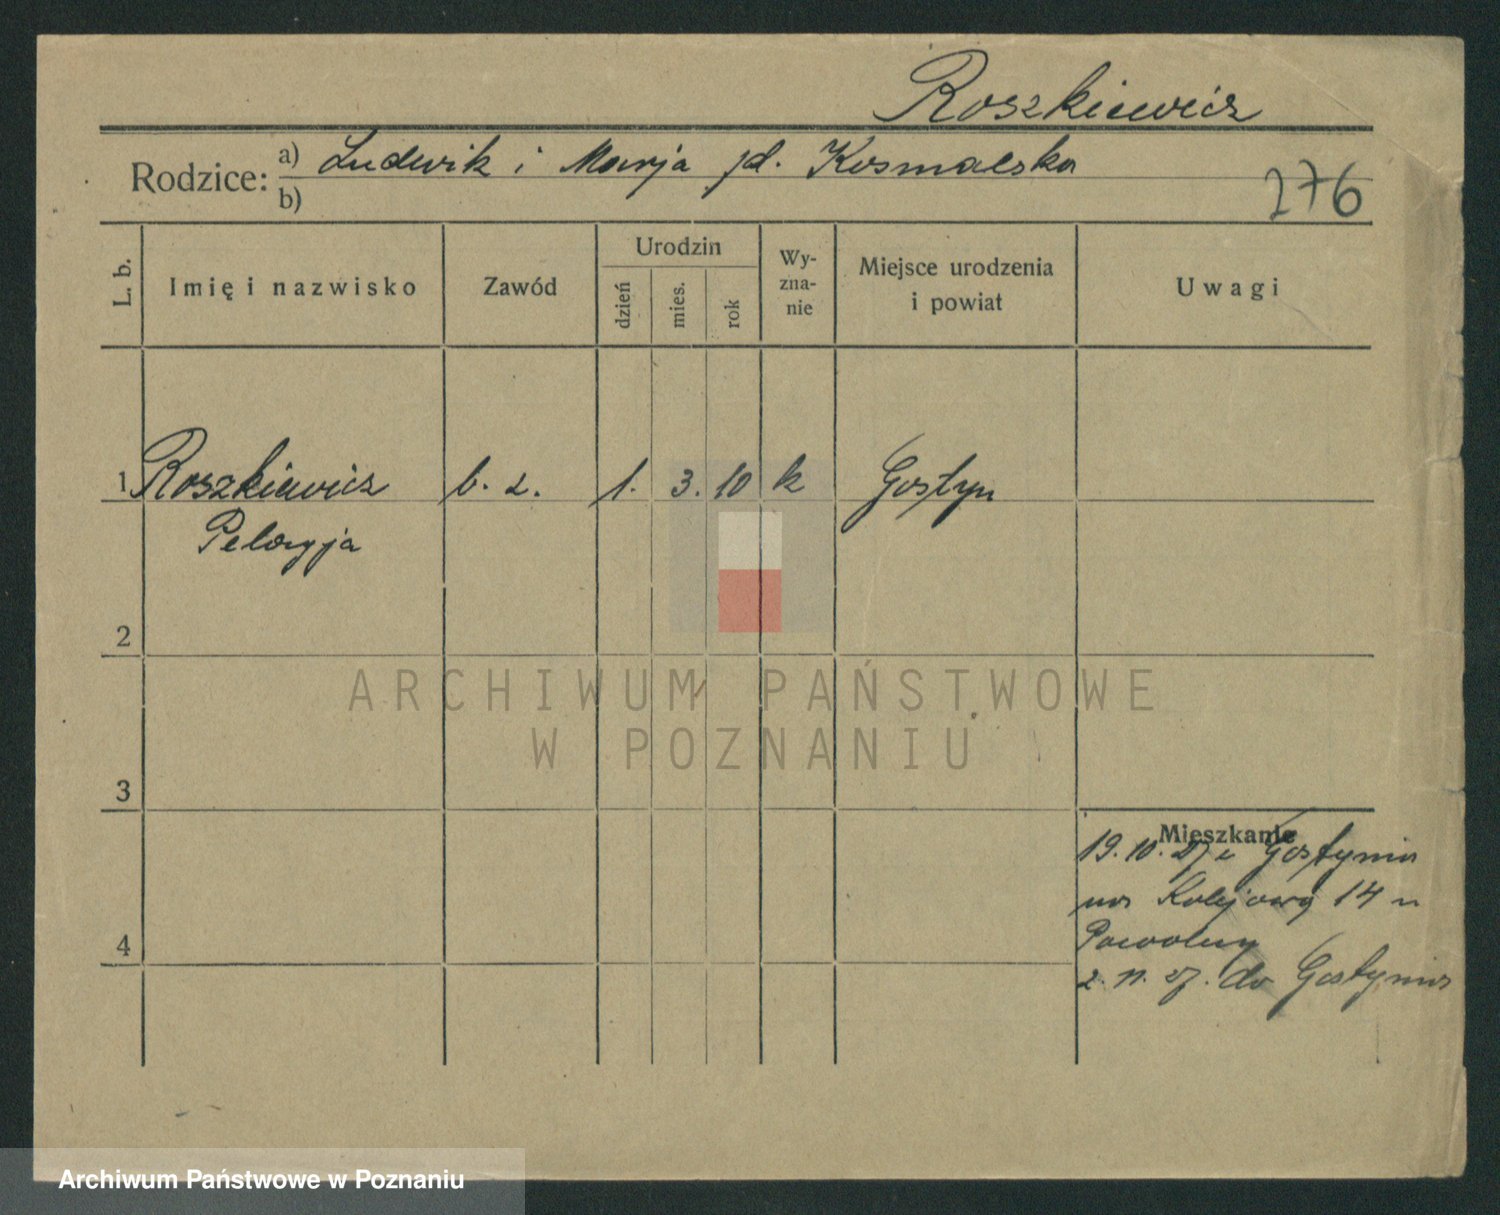 Roszkiewicz
Rodzice: a) Ludwik i Marja jd. Kosmalska
b)
276
L. b.
Imię i nazwisko
Zawód
Urodzin
dzień
mies.
rok
Wy-
zna-
nie
Miejsce urodzenia
i powiat
Uwagi
1 Roszkiewicz b. z. 1. 3. 10 k Gostyn
Pelagja
2
3
4
Mieszkanie
19. 10. 27 z Gostynia
na Kolejową 14 u
2. 11. 27. do Gostynia
ARCHIWUM PAŃSTWOWE
W POZNANIU
Archiwum Państwowe w Poznaniu